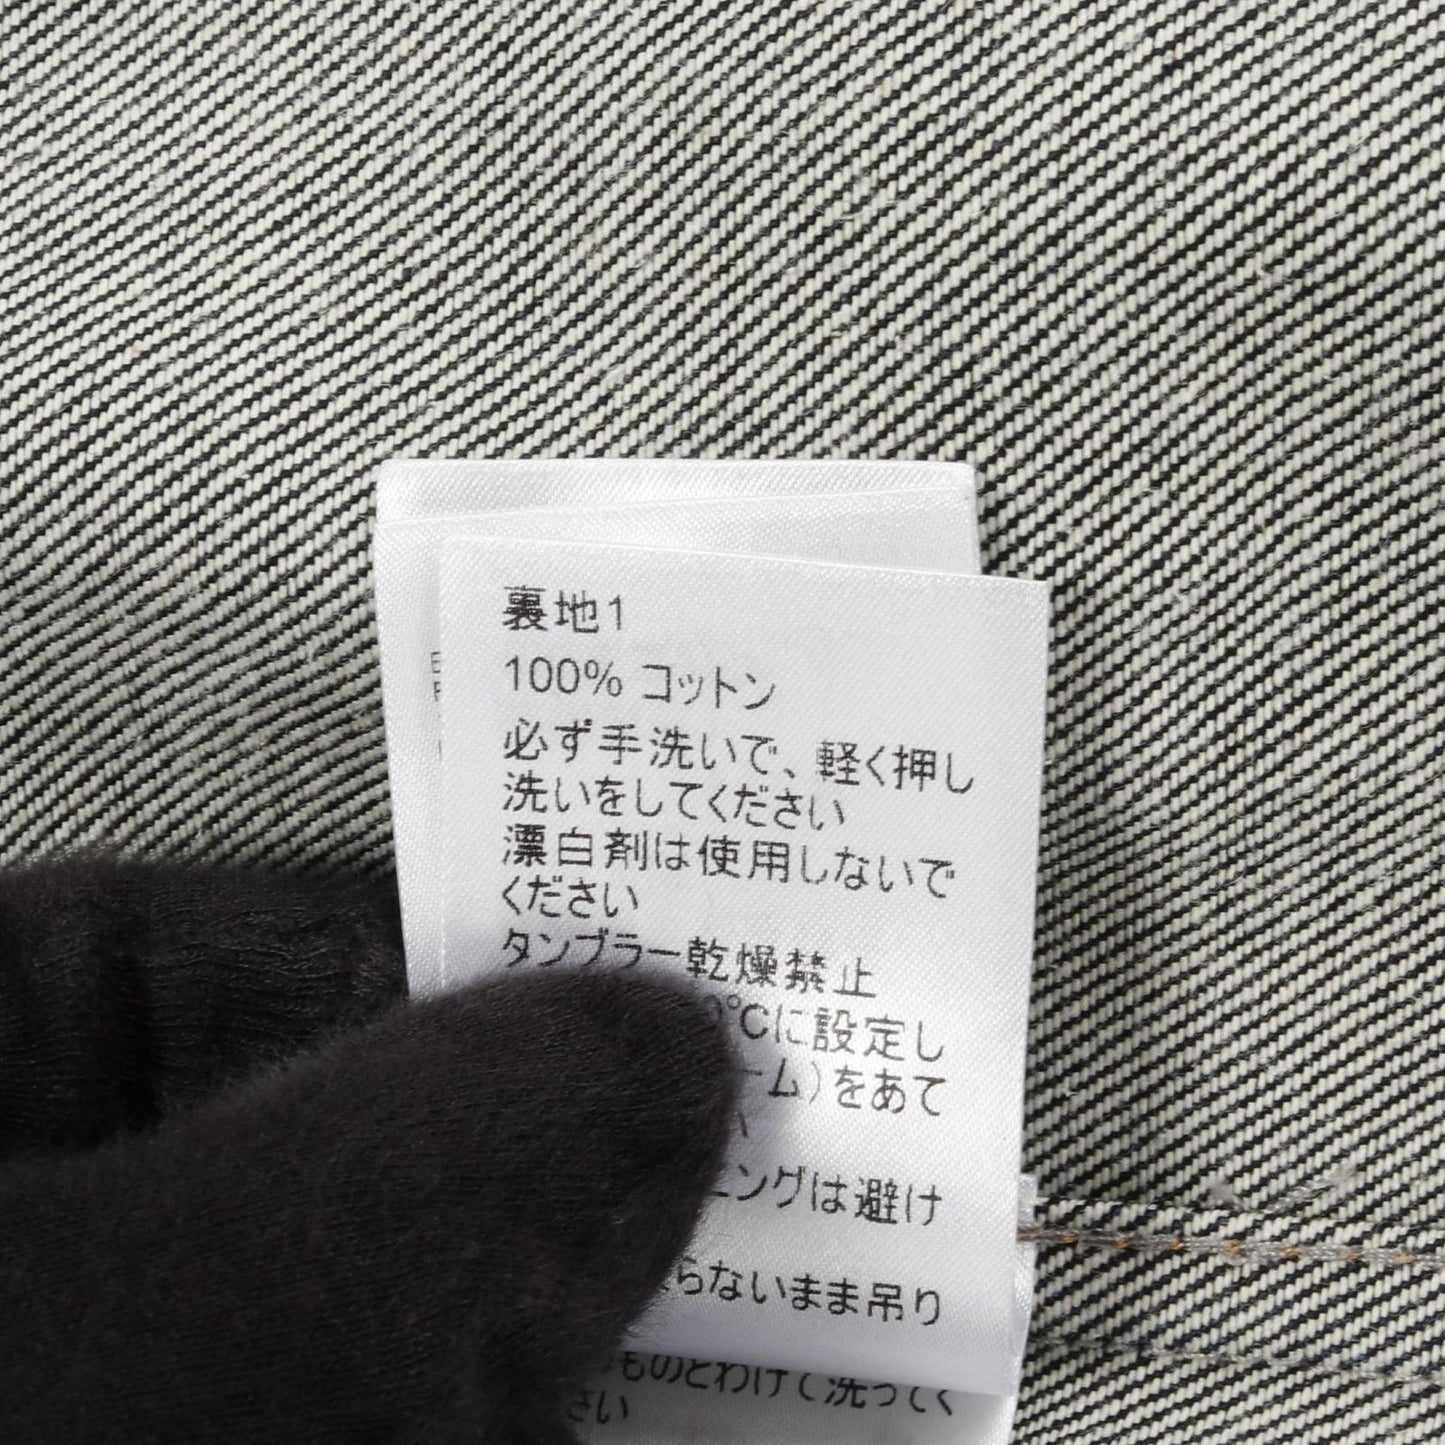 裏地1
100% コットン
必ず手洗いで、軽く押し
洗いをしてください
漂白剤は使用しないで
ください
タンブラー乾燥禁止
℃に設定し
ーム）をあて
ングは避け
らないまま吊り
ものとわけて洗ってく
さい